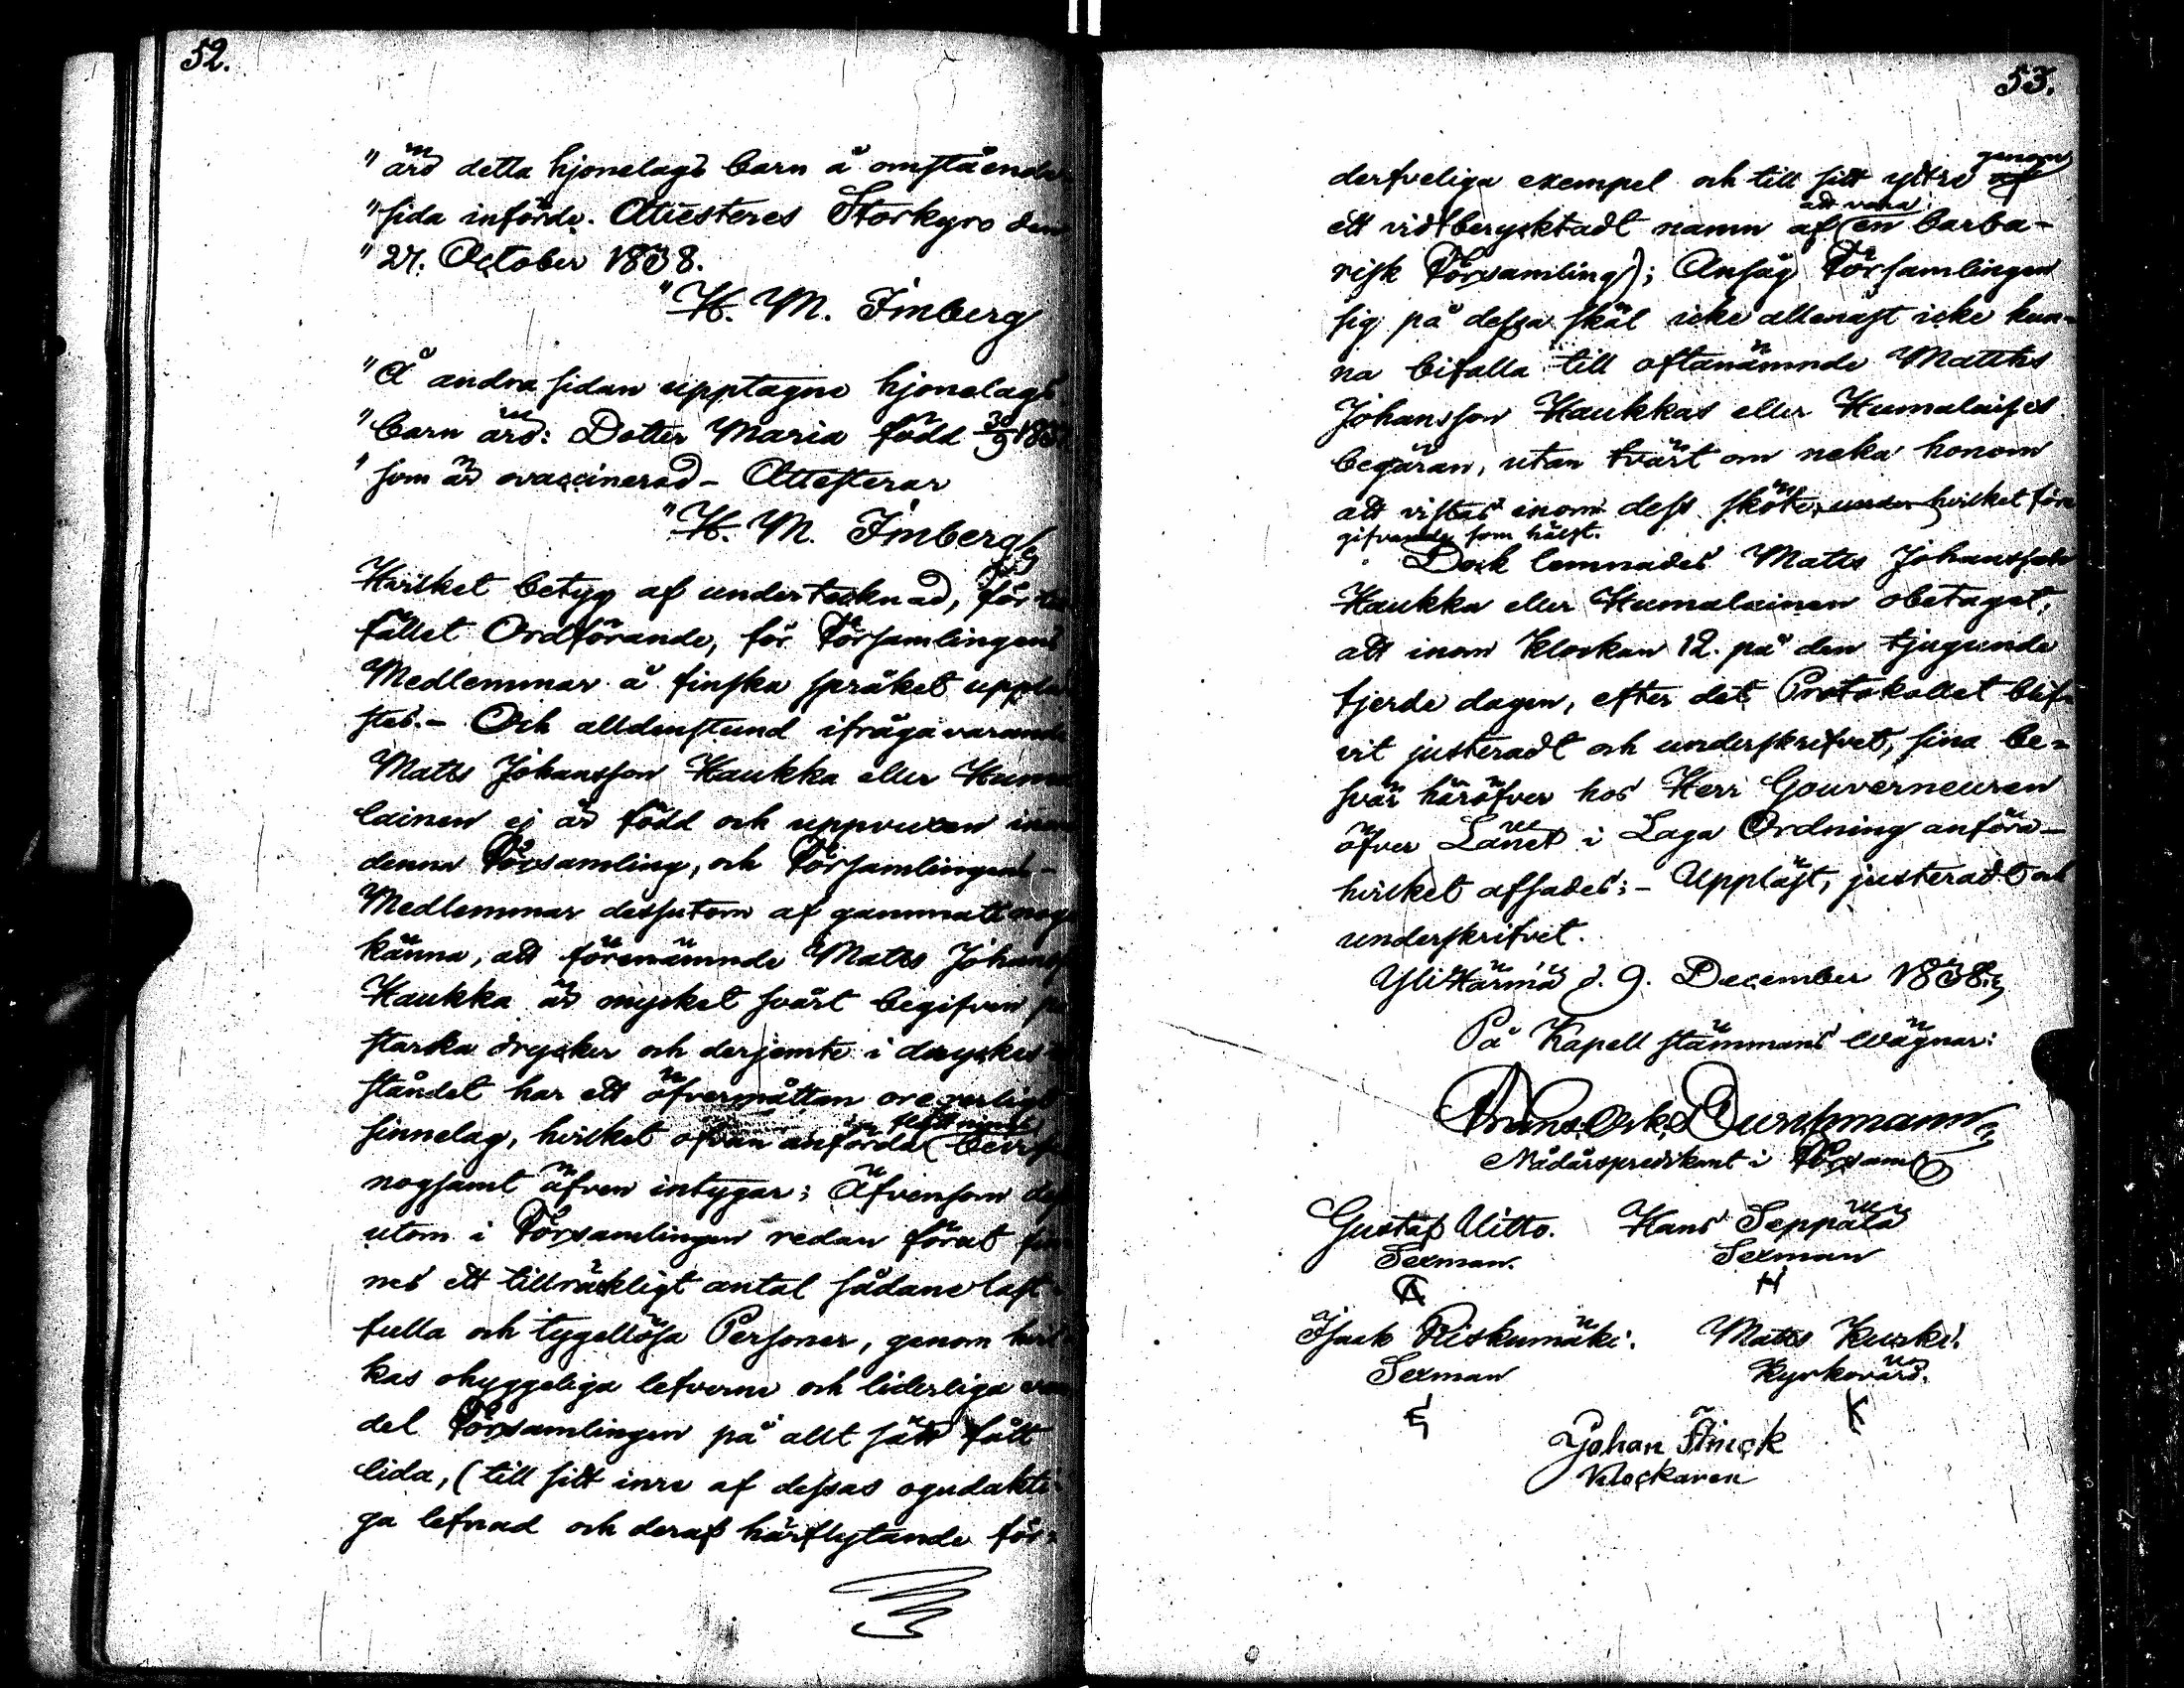 52.
" äro detta hjonelags barn å omstående
" sida införde. Attesteres Storkyro den
" 27. October 1838.
" H. M. Finberg
" Å andra sidan upptagne hjonelags
" barn äro: Dotter Maria född 30/9 183
" som är ovaccinerad – Attesterar
" H. M. Finberg
Hvilket betyg af undertecknad, för
fället Ordförande, för Församlingens
Medlemmar å finska språket uppl
stes. – Och alldenstund ifrågavarande
Matts Johansson Haukka eller Huma
lainen ej är född och uppvuxen inom
denna Församling, och Församlingens –
Medlemmar dessutom af gammalt nog
känna, att förenämnde Matts Johans
Haukka är mycket svårt begifven på
starka drycker och derjemte i dryckes
ståndet har ett öfvermåttan oregerligt
sinnelag, hvilket ofvan anförda
nogsamt äfven intygar; Äfvensom des
utom i Församlingen redan förut fin
nes ett tillräckligt antal sådane last-
fulla och tygellösa Personer, genom hvil
kas ohyggeliga lefverne och liderliga van
del Församlingen på allt sätt fått
lida, (till sitt inre af dessas ogudakti-
ga lefnad och deraf härflytande för-
53.
genom
derfveliga exempel och till sitt yttre af
att vara
ett vidtberycktadt namn af en barba-
risk Församling); Ansåg Församlingen
sig på dessa skäl icke allenast icke kun-
na bifalla till oftanämnde Matths
Johansson Haukkas eller Humalaises
begäran, utan tvärt om neka honom
att vistas inom dess sköte, under hvilket före
gifvande som hälst.
Dock lemnades Matts Johansson
Haukka eller Humalainen obetaget,
att inom klockan 12. på den tjugunde
fjerde dagen, efter det Protokollet blif-
vit justeradt och underskrifvet, sina be-
svär häröfver hos Herr Gouverneuren
öfver Länet i Laga Ordning anföra –
hvilket afsades; – Uppläst, justeradt och
underskrifvet.
Yli Härmä d. 9. December 1838.
På Kapell stämmans Wägnar:
Frans Osk. Durchmann
Nådårspredikant i Församl
Gustaf Uitto. Hans Seppälä
Sexman. Sexman
H
Isaak Riskumäki. Matts Kuski.
Sexman Kyrkovärd.
K
Johan Finck
Klockaren